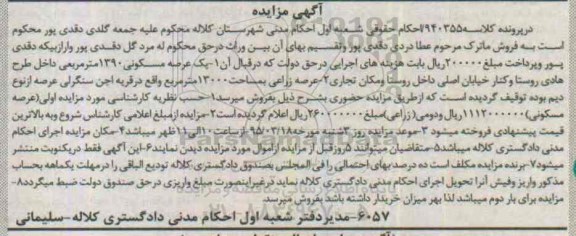 آگهی مزایده
درپرونده کلاسه۹۴۰۳۵۵/احکام حقوقی شعبه اول احکام مدنی شهرستان کلاله محکوم علیه جمعه گلدی دقدی پور محکوم
است به فروش ماترک مرحوم عطا دردی دقدی پور وتقسیم بهای آن بین وراث درحق محکوم له مرد گل دقدی پور وارازبیکه دقدی
پور وپرداخت مبلغ۲۰۰۰۰۰ریال بابت هزینه های اجرایی درحق دولت که درقبال آن۱-یک عرصه مسکونی۱۳۹۰مترمربعی داخل طرح
هادی روستا وکنار خیابان اصلی داخل روستا ومکان تجاری۲-عرصه زراعی بمساحت۱۳۰۰۰مترمربع واقع درقریه اجن سنگرلی عرصه ازنوع
دیم بوده توقیف گردیده است که ازطریق مزایده حضوری بشرح ذیل بفروش میرسد۱-حسب نظریه کارشناسی مورد مزایده اولی(عرصه
مسکونی)۱۱۱۲۰۰۰۰۰۰ریال ودومی(زراعی)مبلغ۲۶۰۰۰۰۰۰۰ریال اعلام گردیده است۲-مزایده ازمبلغ اعلامی کارشناس شروع وبه بالاترین
قیمت پیشنهادی فروخته میشود ۳-موعد مزایده روز ۳شنبه مورخه۹۵/۰۳/۱۸ازساعت۱۰الی۱۱ظهر میباشد۴-مکان مزایده اجرای احکام
مدنی دادگستری کلاله میباشد۵-متقاضیان میتوانند ۵روزقبل از مزایده ازاموال مورد مزایده دیدن نمایند۶-این آگهی فقط دریکنوبت منتشر
میشود۷-برنده مزایده مکلف است ده درصدبهای احتمالی را فی المجلس بصندوق دادگستری کلاله تودیع الباقی را درمهلت یکماهه بحساب
مذکور واریز وفیش آنرا تحویل اجرای احکام مدنی دادگستری کلاله نماید درغیراینصورت مبلغ واریزی درحق صندوق دولت ضبط میگردد۸-
مزایده برای بار دوم میباشد لذا بهر میزان خریدار داشته باشد بفروش میرسد.
۶۰۵۷-مدیردفتر شعبه اول احکام مدنی دادگستری کلاله-سلیمانی